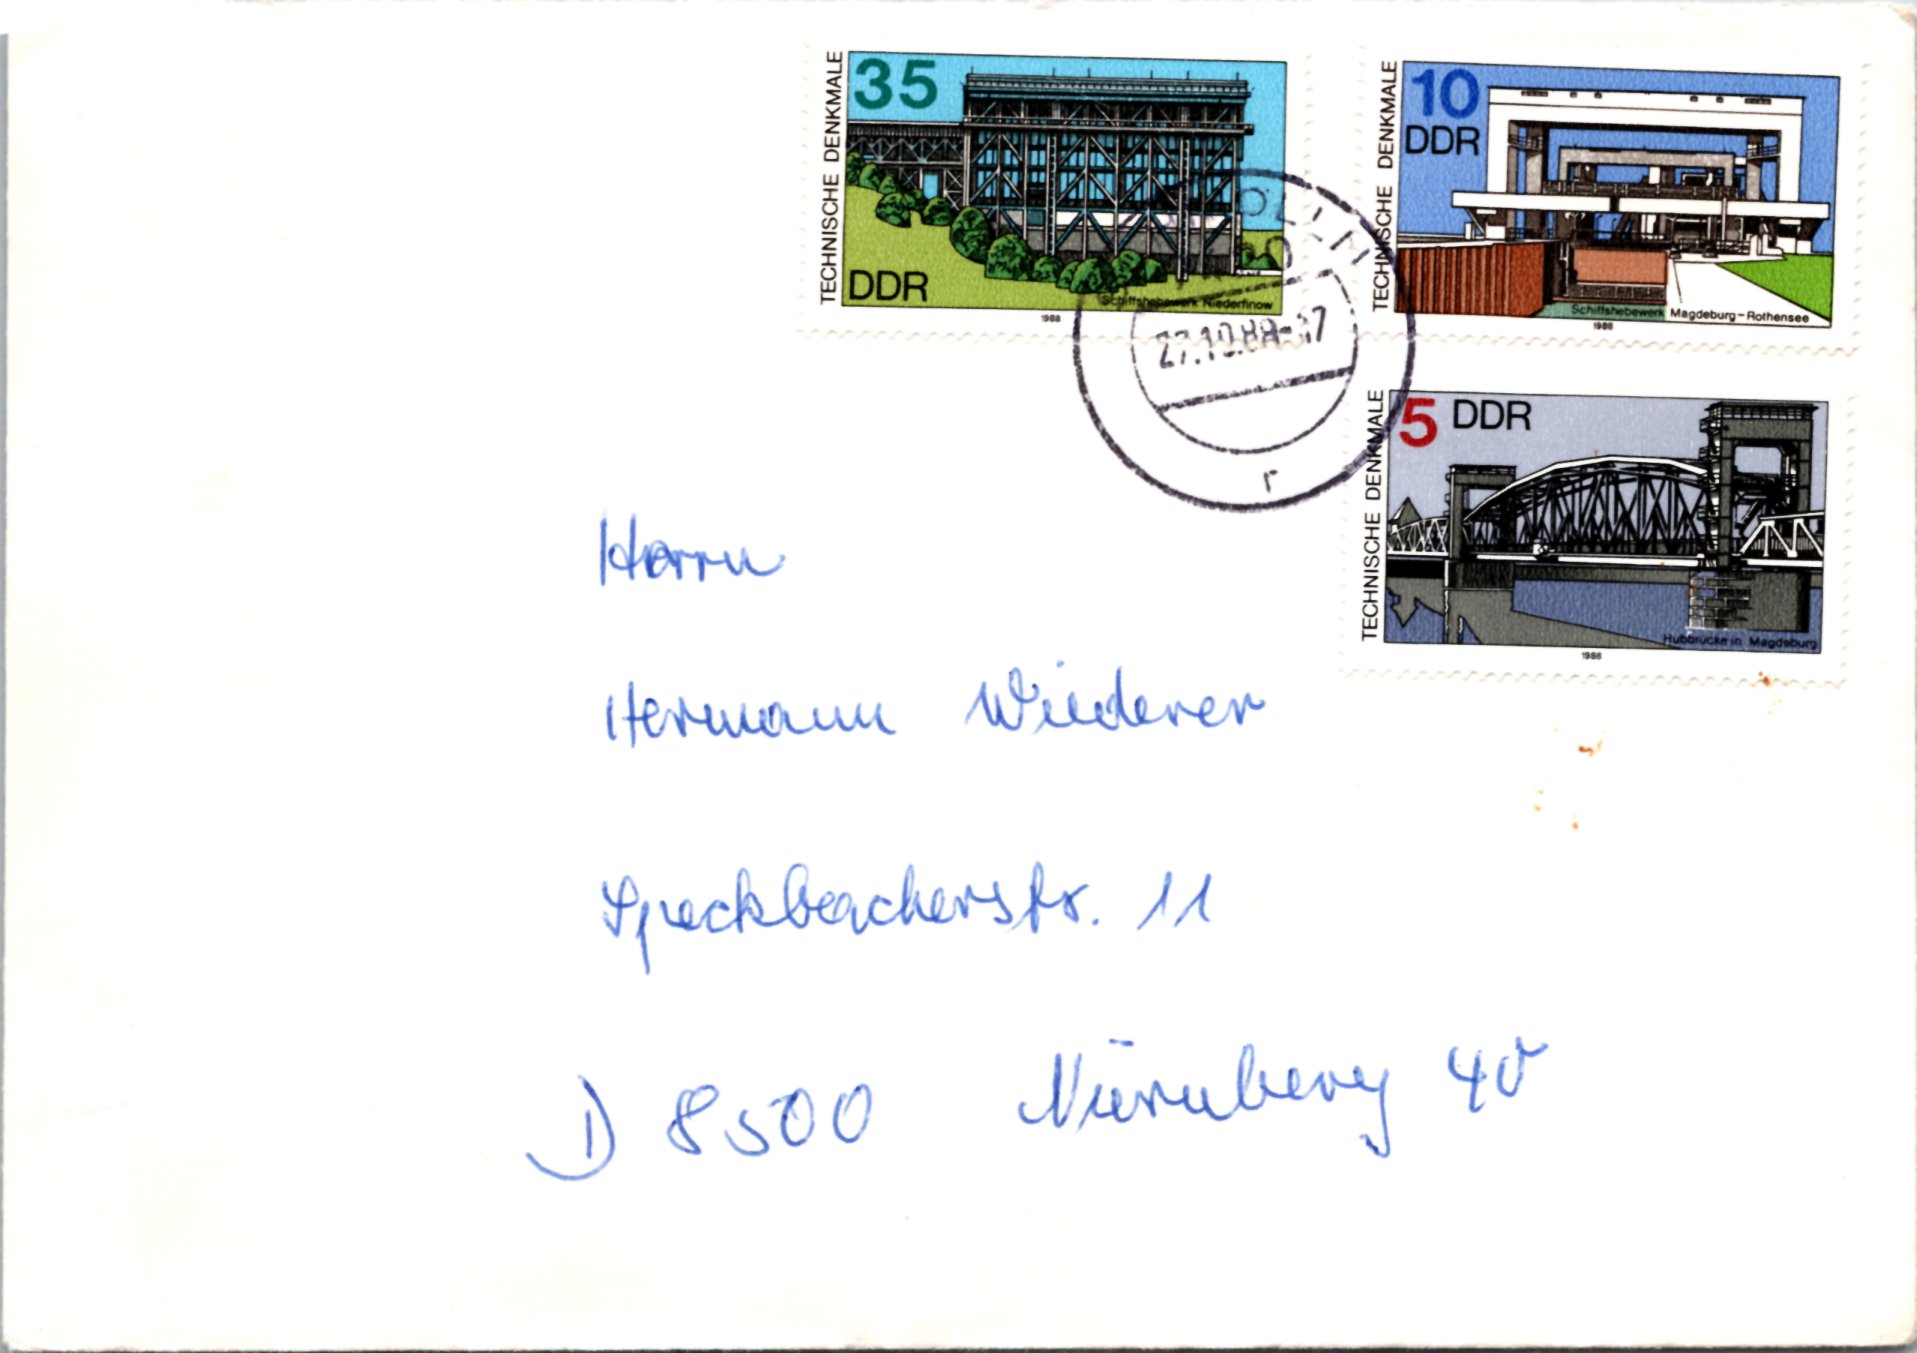 TECHNISCHE DENKMALE
35
DDR
Schiffshebewerk Niederfinow
1988
TECHNISCHE DENKMALE
10
DDR
Schiffshebewerk Magdeburg-Rothensee
1988
27.10.88-17
r
TECHNISCHE DENKMALE
5 DDR
Hubbrücke in Magdeburg
1988
Herrn
Hermann Wiederer
Speckbacherstr. 11
D 8500 Nürnberg 40